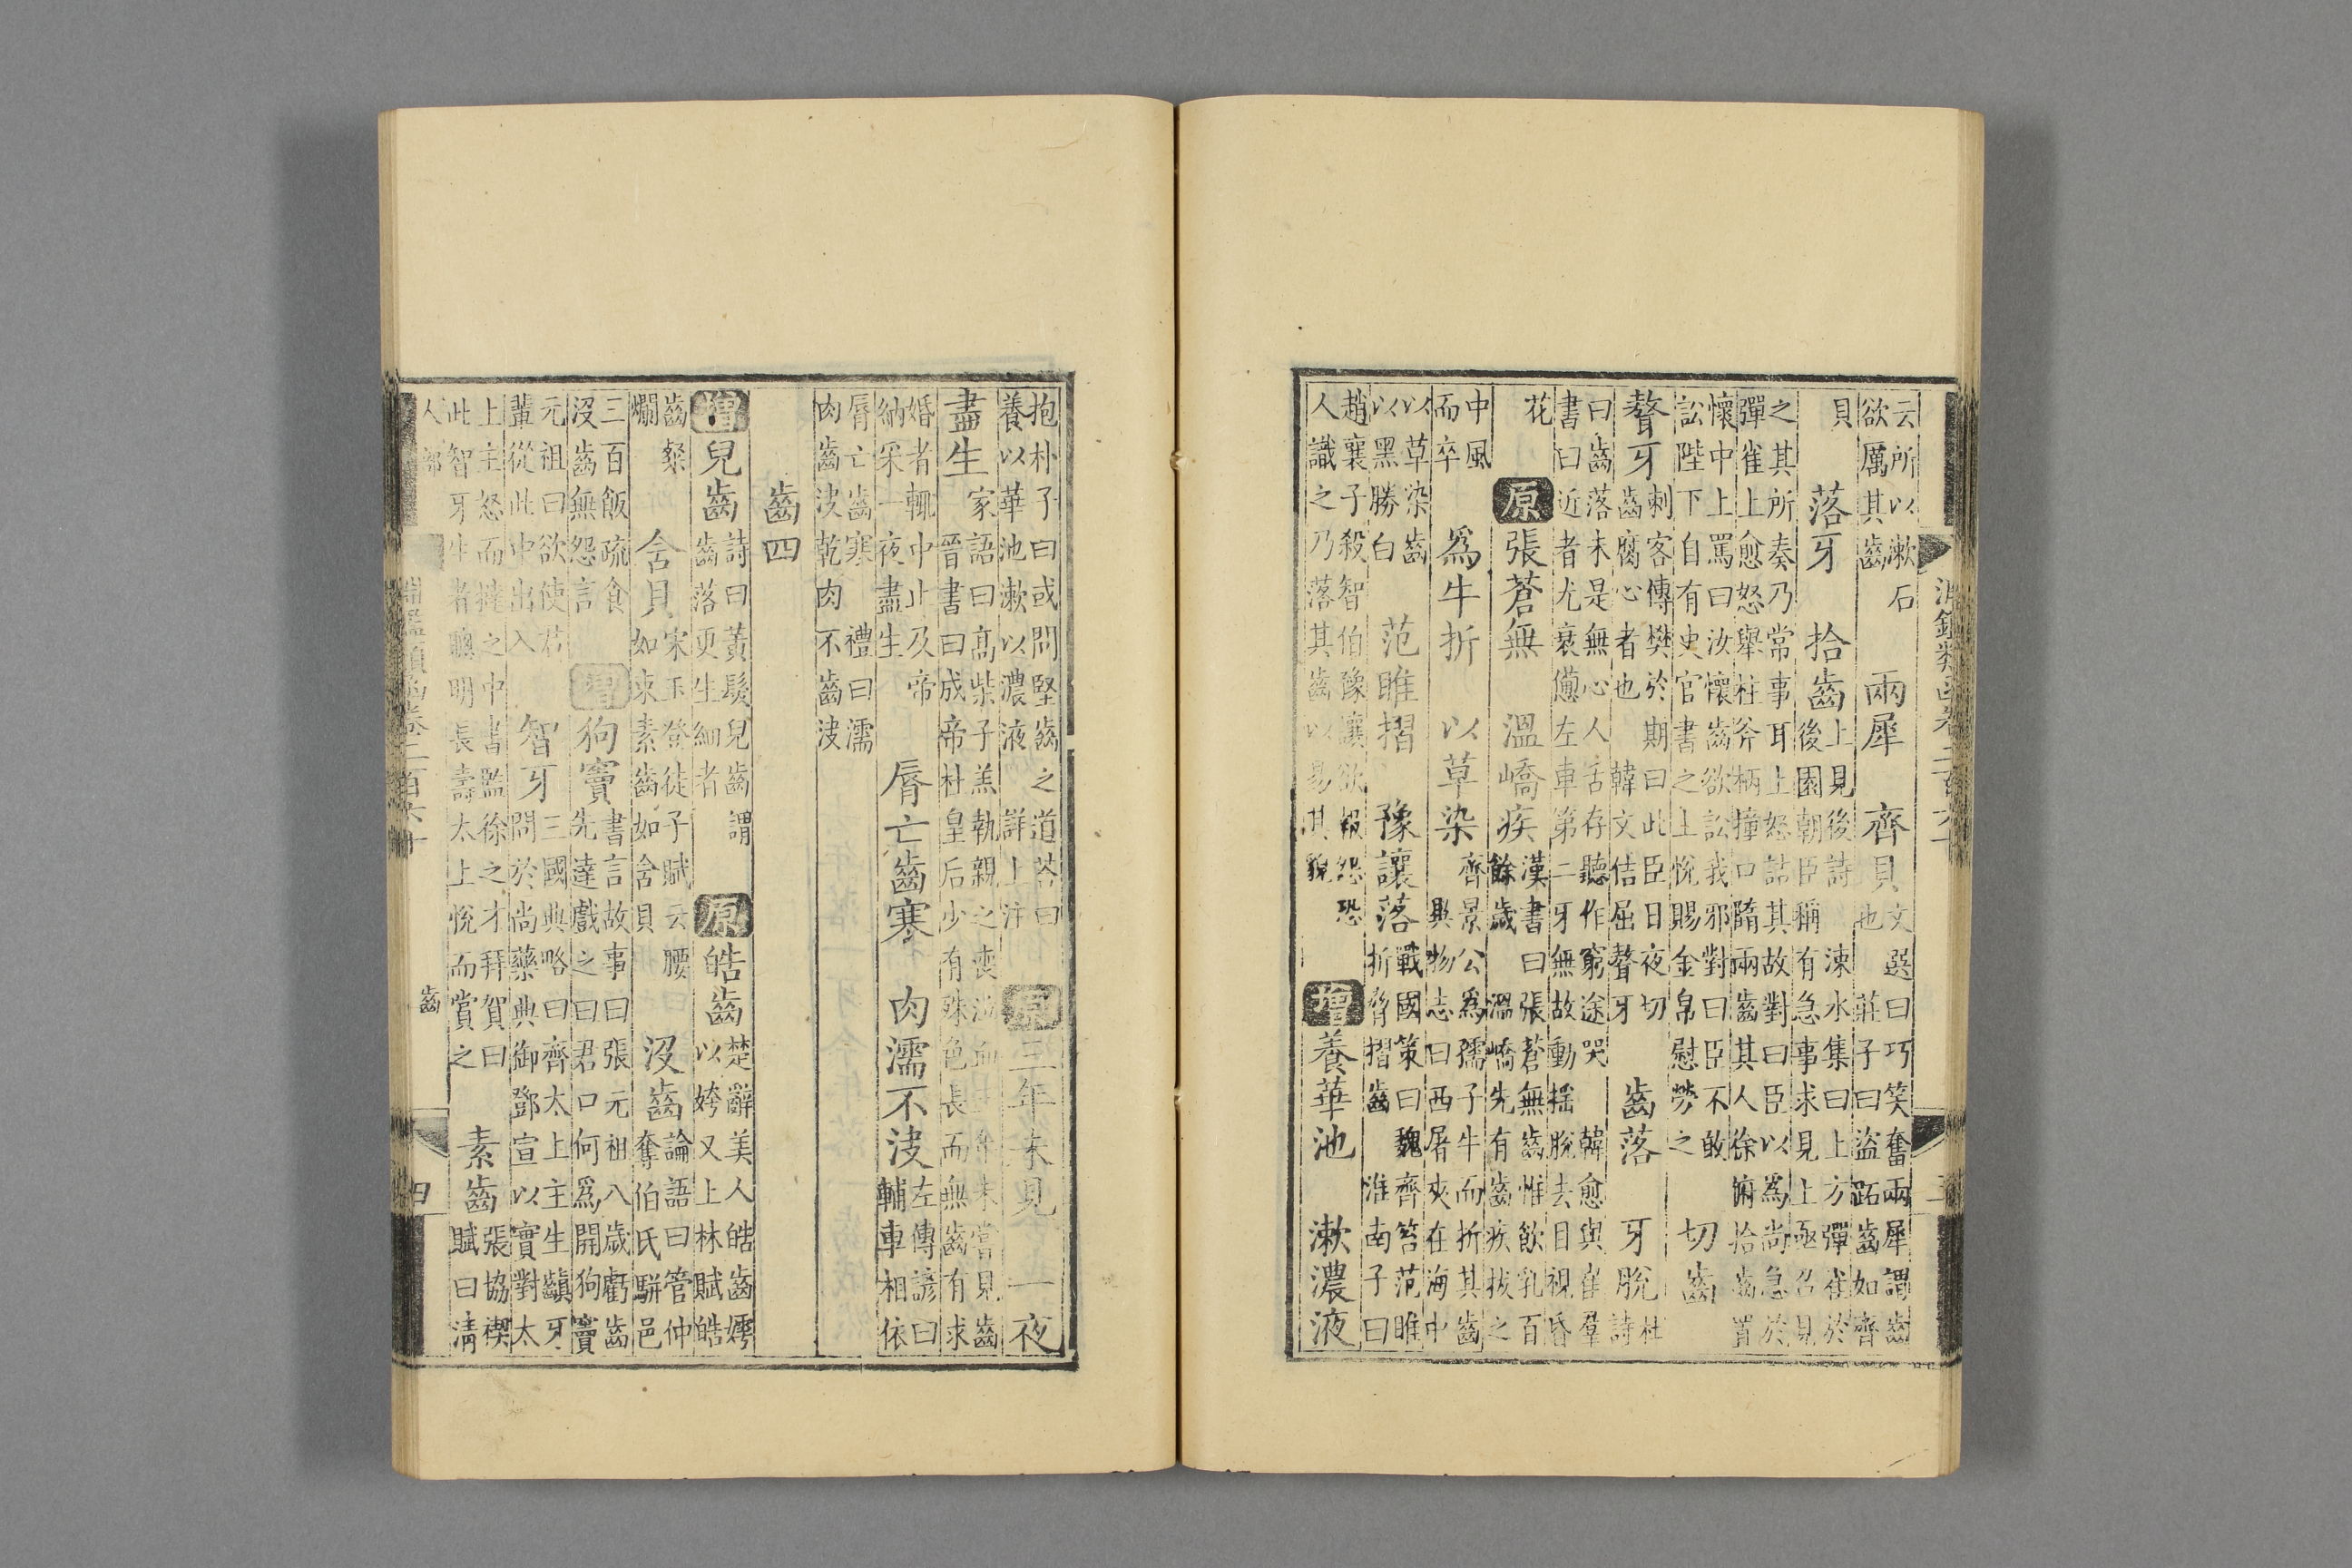 淵鑑類函卷二百六十
云所以漱石欲厲其齒 兩犀 齊貝 文選曰巧笑奮兩犀謂齒也 莊子曰盜跖齒如齊
貝 落牙 拾齒 上見後詩 涑水集曰上方彈雀於後園朝臣稱有急事求見上亟召見
之其所奏乃常事耳上怒詰其故對曰臣以爲尚急於彈雀上愈怒舉柱斧柄撞口隋兩齒其人徐俯拾齒置
懷中上罵曰汝懷齒欲訟我邪對曰臣不敢訟陛下自有史官書之上悅賜金帛慰勞之 切齒
聱牙 刺客傳樊於期曰此臣日夜切齒腐心者也 韓文佶屈聱牙 齒落 牙脫 杜詩
曰齒落未是無心人舌存聽作窮途哭 韓愈與崔羣書曰近者尤衰憊左車第二牙無故動搖脫去目視昏
花 原 張蒼無 溫嶠疾 漢書曰張蒼無齒惟飲乳百餘歲 溫嶠先有齒疾拔之
中風而卒 爲牛折 以草染 齊景公爲孺子牛而折其齒 異物志曰西屠夾在海中
以草染齒以黑勝白 范雎摺 豫讓落 戰國策曰魏齊笞范雎折脅摺齒 淮南子曰
趙襄子殺智伯豫讓欲報怨恐人識之乃落其齒以易其貌 增 養華池 漱濃液
抱朴子曰或問堅齒之道荅曰養以華池漱以濃液 詳上注 原 三年未見 一夜
盡生 家語曰高柴子羔執親之喪泣血三年未嘗見齒 晉書曰成帝杜皇后少有殊色長而無齒有求
婚者輒中止及帝納采一夜盡生 脣亡齒寒 肉濡不決 左傳諺曰輔車相依
脣亡齒寒 禮曰濡肉齒決乾肉不齒決
齒四
增 兒齒 詩曰黃髮兒齒謂齒落更生細者 原 皓齒 楚辭美人皓齒嫮以姱又上林賦皓
齒粲爛 含貝 宋玉登徒子賦云腰如束素齒如含貝 沒齒 論語曰管仲奪伯氏駢邑
三百飯疏食沒齒無怨言 增 狗竇 書言故事曰張元祖八歲虧齒先達戲之曰君口何爲開狗竇
元祖曰欲使君輩從此中出入 智牙 三國典略曰齊太上主生齻牙問於尚藥典御鄧宣以實對太
上主怒而撻之中書監徐之才拜賀曰此智牙生者聰明長壽太上悅而賞之 素齒 張協禊賦曰清
人部 淵鑑類函卷二百六十 齒 四